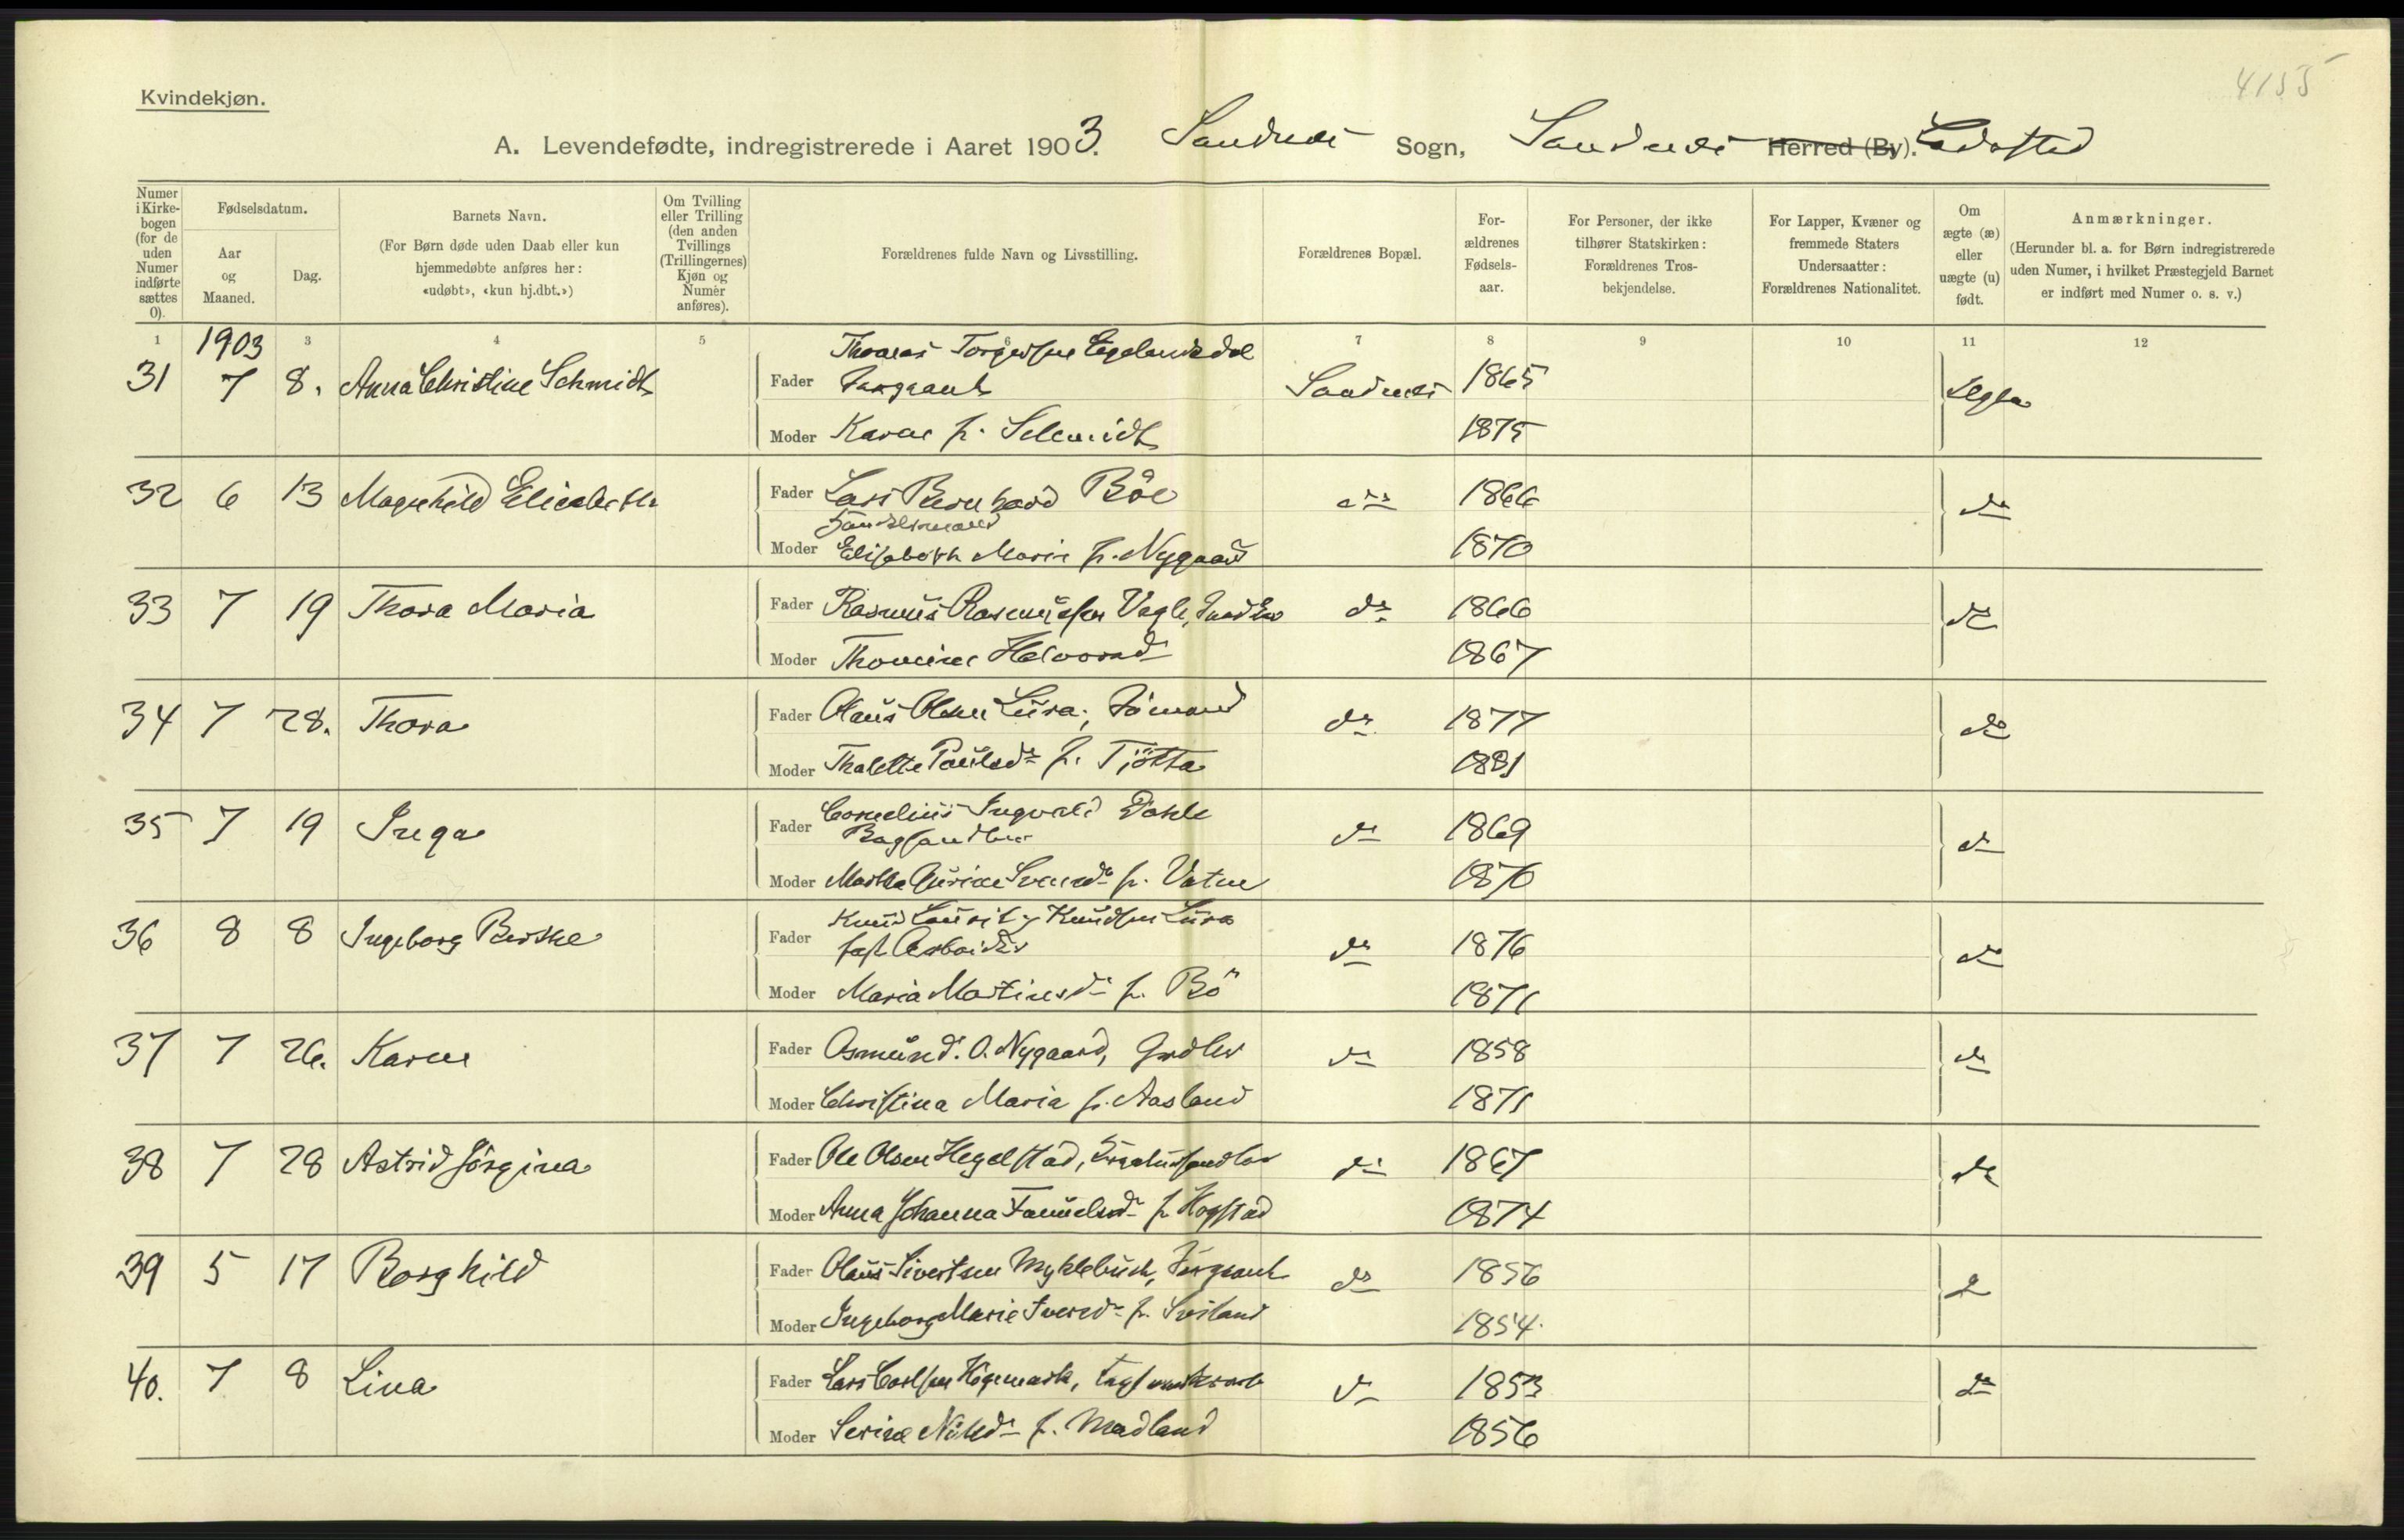 4155
Kvindekjøn.
A. Levendefødte, indregistrerede i Aaret 1903. Sandnes Sogn, Sandnes Herred (By). Ladested
Numer i Kirkebogen (for de uden Numer indførte sættes 0).
Fødselsdatum.
Aar og Maaned.
Dag.
Barnets Navn.
(For Børn døde uden Daab eller kun hjemmedøbte anføres her: «udøbt», «kun hj.dbt.»)
Om Tvilling eller Trilling (den anden Tvillings (Trillingernes) Kjøn og Numer anføres).
Forældrenes fulde Navn og Livsstilling.
Forældrenes Bopæl.
For-ældrenes Fødsels-aar.
For Personer, der ikke tilhører Statskirken: Forældrenes Tros-bekjendelse.
For Lapper, Kvæner og fremmede Staters Undersaatter: Forældrenes Nationalitet.
Om ægte (æ) eller uægte (u) født.
Anmærkninger.
(Herunder bl. a. for Børn indregistrerede uden Numer, i hvilket Præstegjeld Barnet er indført med Numer o. s. v.)
1 1903 3 4 5 6 7 8 9 10 11 12
31 7 8. Anna Christine Schmidt Fader Thomas Torgersen Egelandsdal
Sergeant Sandnes 1865 Ægte
Moder Karen f. Schmidt 1875
32 6 13 Magnhild Elisabeth Fader Lars Bernhard Böe do 1866 do
Handelsmand
Moder Elisabeth Marie f. Nygaard 1870
33 7 19 Thora Maria Fader Rasmus Rasmussen Vagle, do 1866 do
Moder Thomine Halvorsd 1867
34 7 28. Thora Fader Olaus Olsen Lura, Sömand do 1877 do
Moder Thalette Paulsdr f. Tjötta 1881
35 7 19 Inga Fader Cornelius Ingvald Dahle
Baghandler do 1869 do
Moder Martha Gurine Svendsdr f. Vatne 1870
36 8 8 Ingeborg Berthe Fader Knud Lauritz Knudsen Lura
fast Arbeider do 1876 do
Moder Maria Martinesdr f. Bö 1871
37 7 26. Karen Fader Osmund O. Nygaard, do 1858 do
Moder Christina Maria f. Aasland 1871
38 7 28 Astrid Jörgina Fader Ole Olsen Hegelstad, do 1867 do
Moder Anna Johanna f. Hogstad 1874
39 5 17 Borghild Fader Olaus Sivertsen Myklebust, Sergeant do 1856
Moder Ingeborg Marie f. Sviland 1854.
40. 7 8 Lina Fader Lars Carlsen do 1853 do
Moder Serine Nilsdr f. Madland 1856